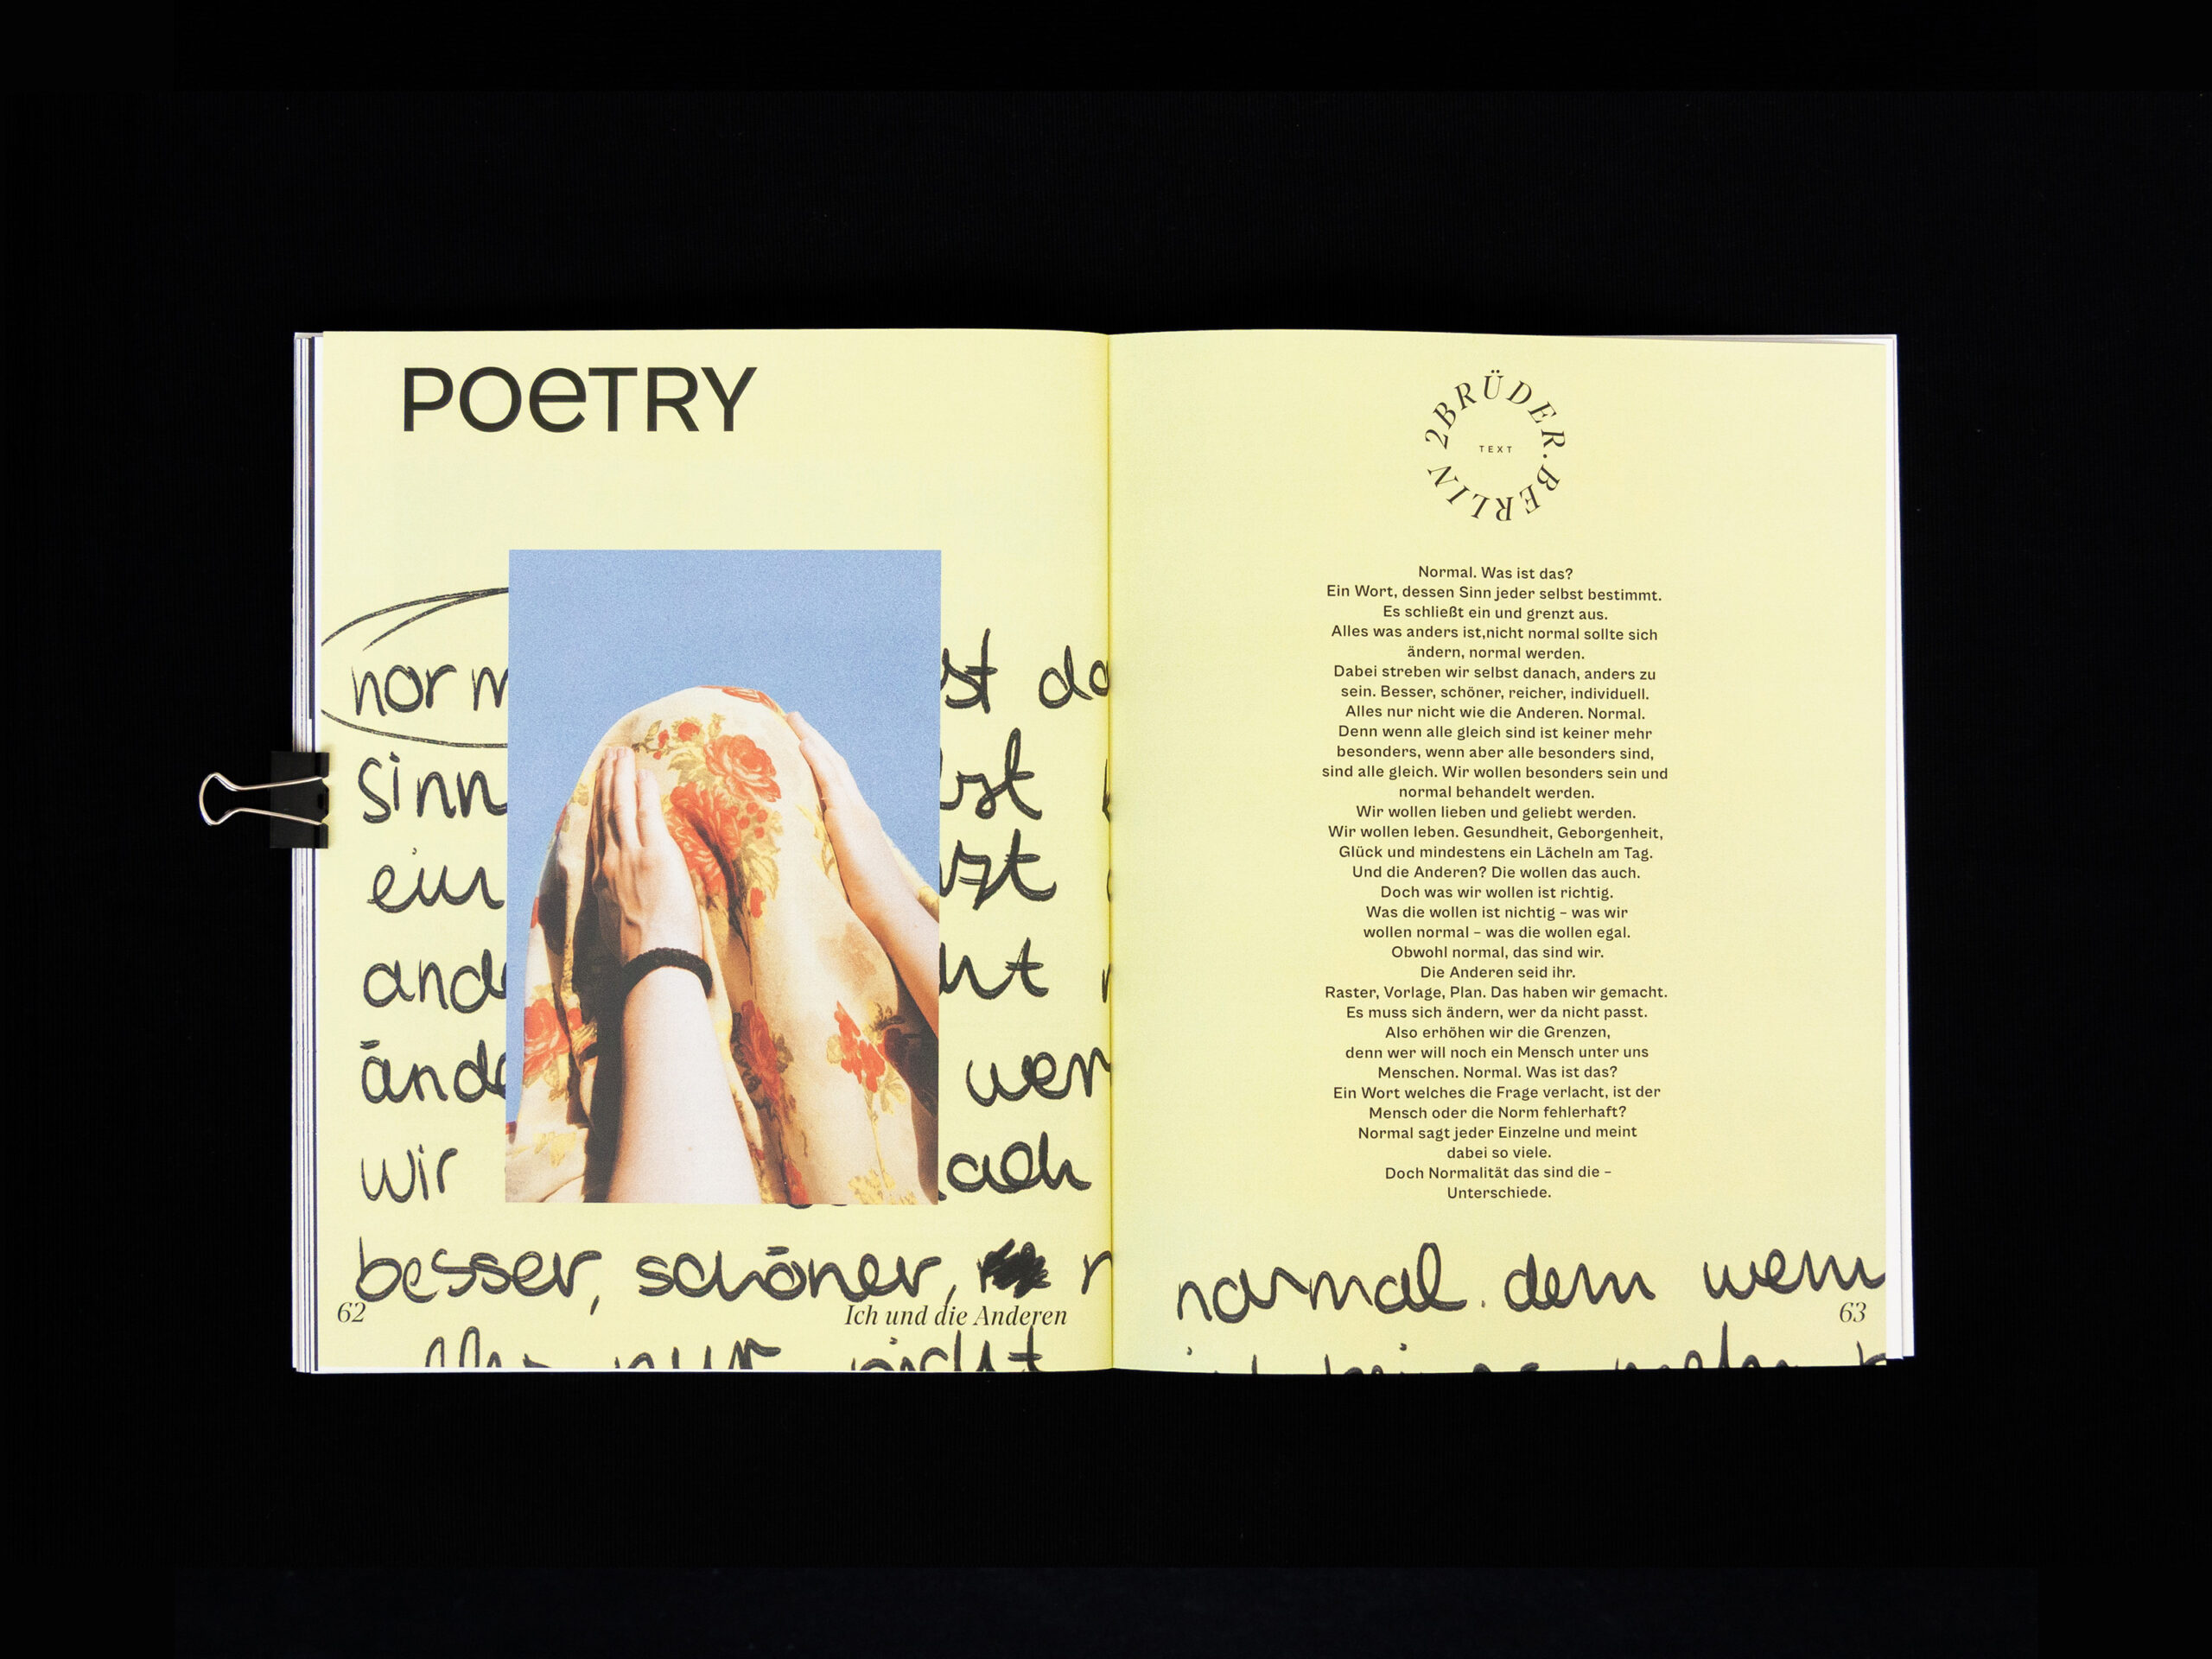 POeTRY
norm st da
sinn bst
ein zt
ande ht
ände wer
wir nach
besser, schöner,
62
Ich und die Anderen
nur nicht
2BRÜDER·BERLIN
TEXT
Normal. Was ist das?
Ein Wort, dessen Sinn jeder selbst bestimmt.
Es schließt ein und grenzt aus.
Alles was anders ist,nicht normal sollte sich
ändern, normal werden.
Dabei streben wir selbst danach, anders zu
sein. Besser, schöner, reicher, individuell.
Alles nur nicht wie die Anderen. Normal.
Denn wenn alle gleich sind ist keiner mehr
besonders, wenn aber alle besonders sind,
sind alle gleich. Wir wollen besonders sein und
normal behandelt werden.
Wir wollen lieben und geliebt werden.
Wir wollen leben. Gesundheit, Geborgenheit,
Glück und mindestens ein Lächeln am Tag.
Und die Anderen? Die wollen das auch.
Doch was wir wollen ist richtig.
Was die wollen ist nichtig – was wir
wollen normal – was die wollen egal.
Obwohl normal, das sind wir.
Die Anderen seid ihr.
Raster, Vorlage, Plan. Das haben wir gemacht.
Es muss sich ändern, wer da nicht passt.
Also erhöhen wir die Grenzen,
denn wer will noch ein Mensch unter uns
Menschen. Normal. Was ist das?
Ein Wort welches die Frage verlacht, ist der
Mensch oder die Norm fehlerhaft?
Normal sagt jeder Einzelne und meint
dabei so viele.
Doch Normalität das sind die –
Unterschiede.
normal. denn wenn
63